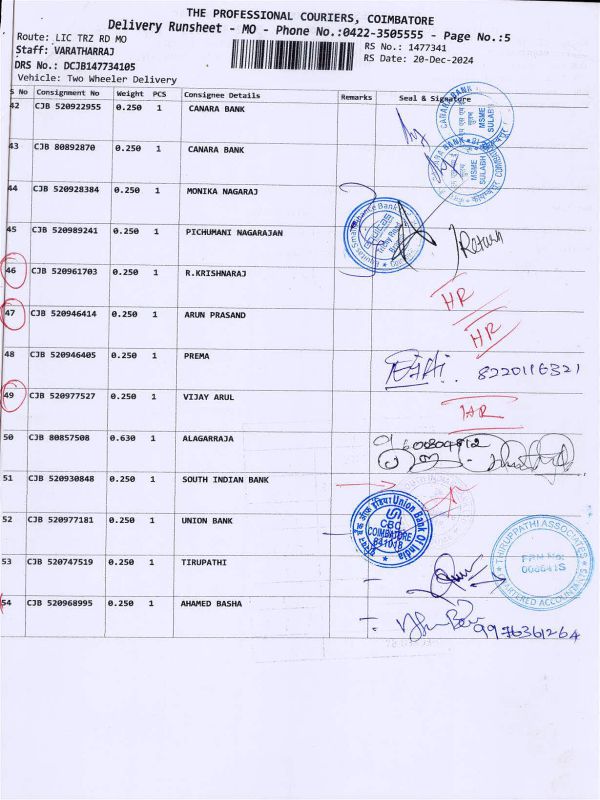 THE PROFESSIONAL COURIERS, COIMBATORE
Delivery Runsheet - MO - Phone No.:0422-3505555 - Page No.:5
Route: LIC TRZ RD MO
RS No.: 1477341
Staff: VARATHARRAJ
RS Date: 20-Dec-2024
DRS No.: DCJB147734105
Vehicle: Two Wheeler Delivery
S No Consignment No Weight PCS Consignee Details Remarks Seal & Signature
42 CJB 520922955 0.250 1 CANARA BANK
CANARA BANK
MSME
SULABH
43 CJB 80892870 0.250 1 CANARA BANK
MSME
SULABH
44 CJB 520928384 0.250 1 MONIKA NAGARAJ
45 CJB 520989241 0.250 1 PICHUMANI NAGARAJAN Return
46 CJB 520961703 0.250 1 R.KRISHNARAJ HR
47 CJB 520946414 0.250 1 ARUN PRASAND HR
48 CJB 520946405 0.250 1 PREMA 8220116321
49 CJB 520977527 0.250 1 VIJAY ARUL
50 CJB 80857508 0.630 1 ALAGARRAJA
51 CJB 520930848 0.250 1 SOUTH INDIAN BANK
52 CJB 520977181 0.250 1 UNION BANK
Union Bank Of India
CBC
COIMBATORE
641018
53 CJB 520747519 0.250 1 TIRUPATHI
THIRUPPATHI ASSOCIATES
FRN No:
CHARTERED ACCOUNTANTS
54 CJB 520968995 0.250 1 AHAMED BASHA 9976361264